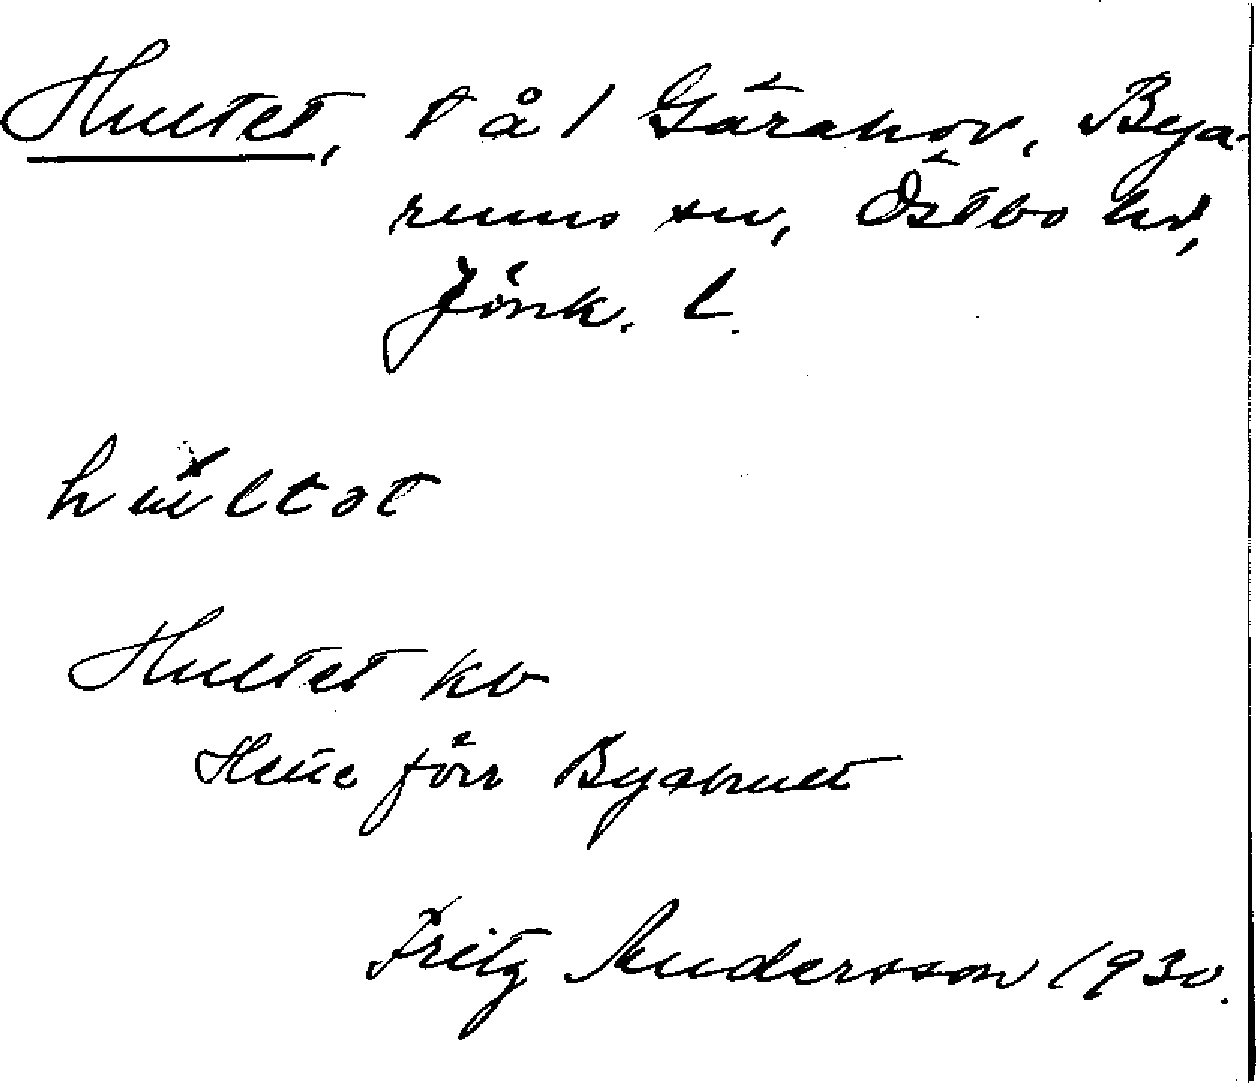 Hultet, t å 1 Gärahov, Bya-
rums sn, Östbo hd,
Jönk. l.
hùltət
Hultet kb
Hette förr Byahult
Fritz Andersson 1930.